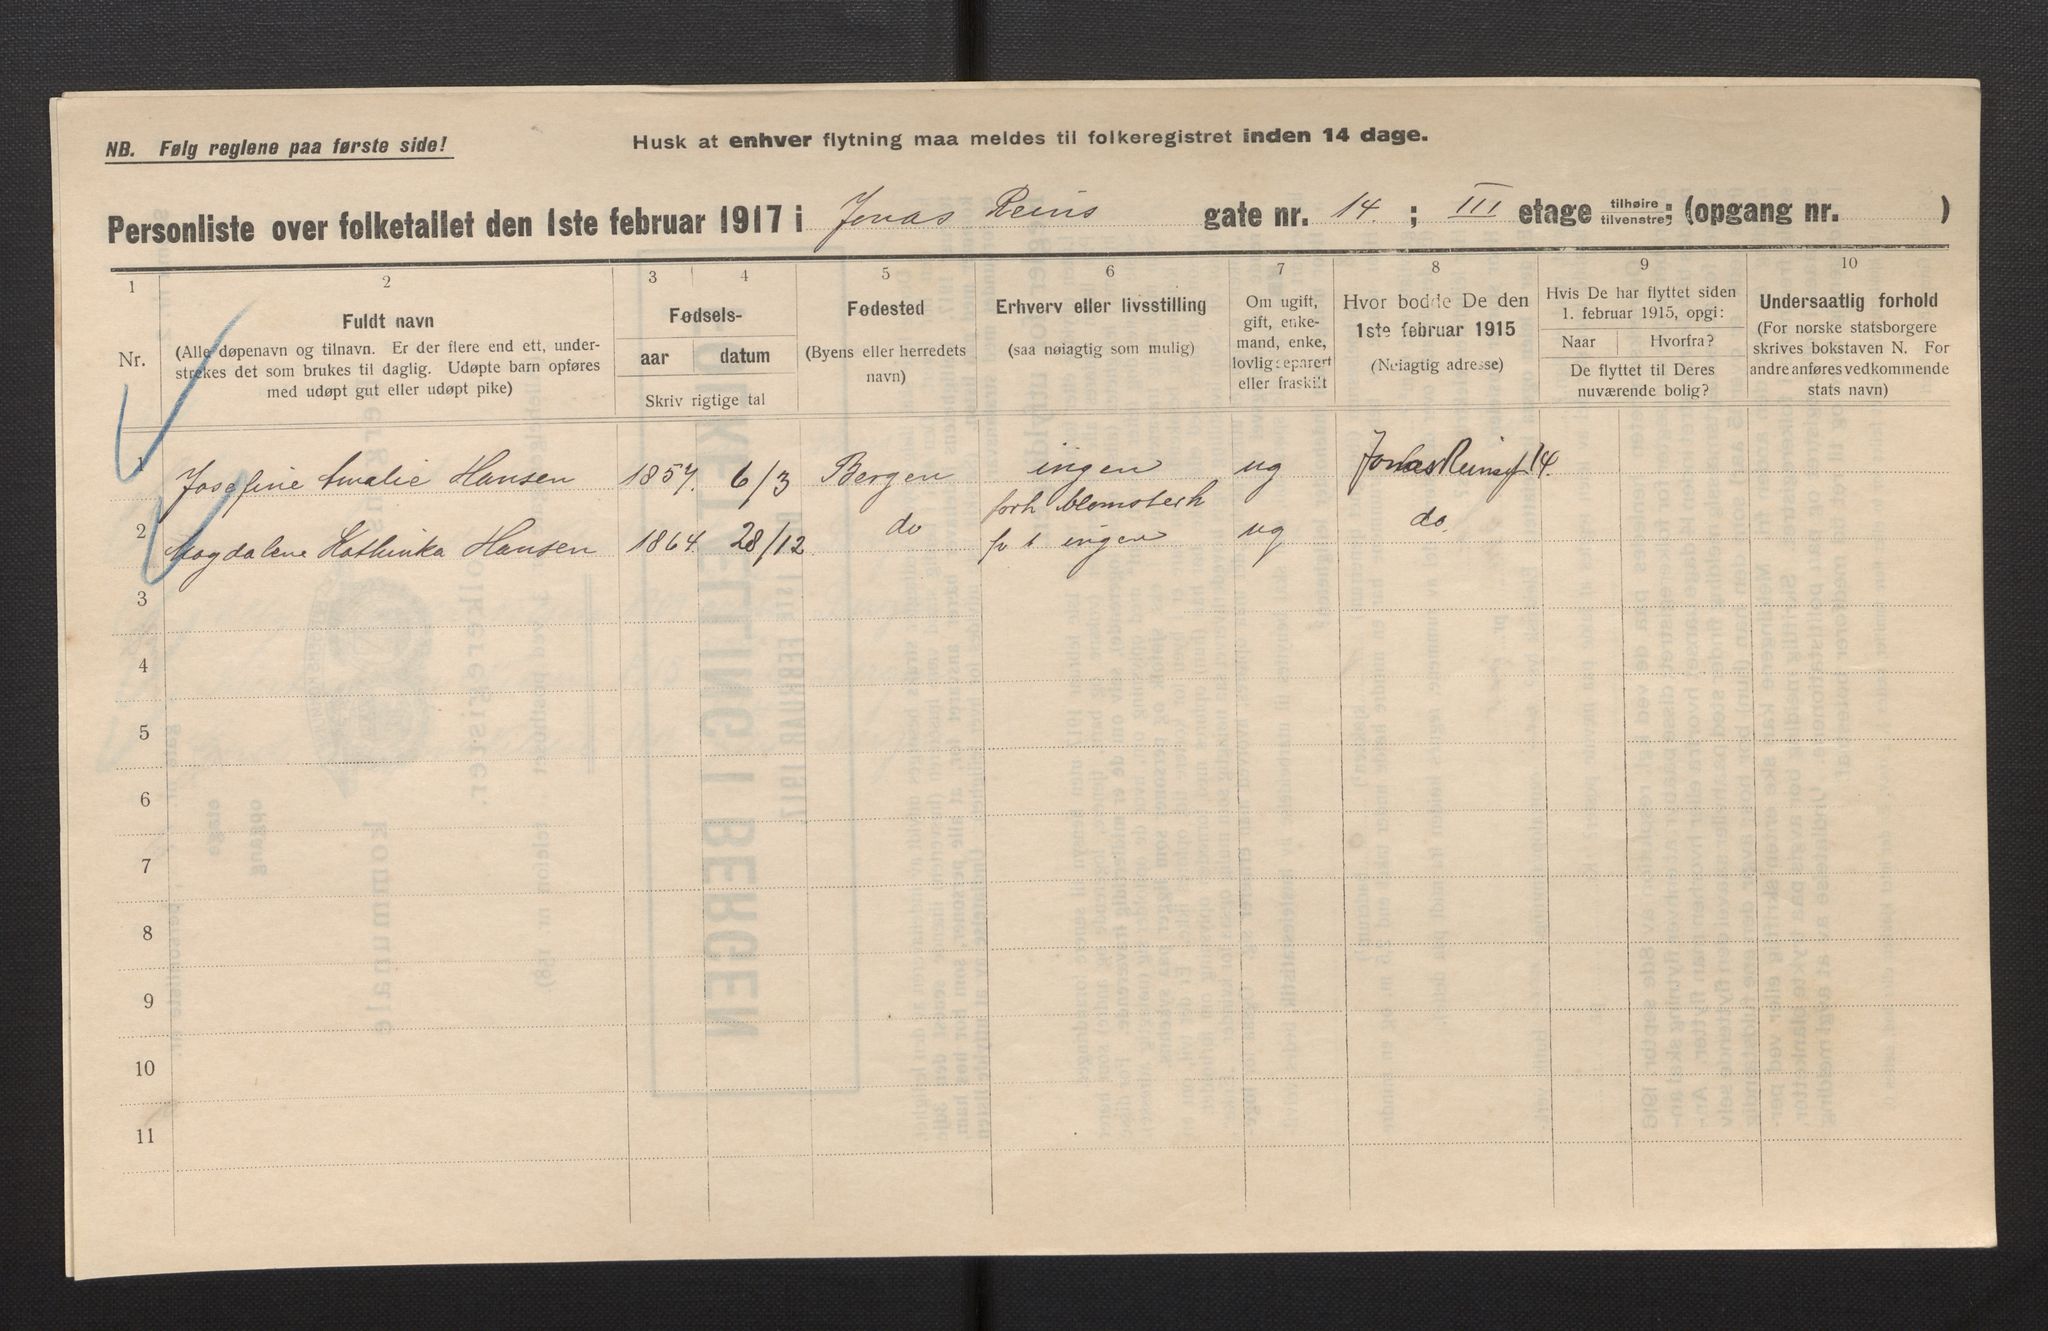 NB. Følg reglene paa første side!
Husk at enhver flytning maa meldes til folkeregistret inden 14 dage.
Personliste over folketallet den 1ste februar 1917 i Jonas Reins gate nr. 14. ; III etage tilhøire tilvenstre; (opgang nr. )
1 2 3 4 5 6 7 8 9 10
Nr.
Fuldt navn
(Alle døpenavn og tilnavn. Er der flere end ett, under-
strekes det som brukes til daglig. Udøpte barn opføres
med udøpt gut eller udøpt pike)
Fødsels-
aar datum
Skriv rigtige tal
Fødested
(Byens eller herredets
navn)
Erhverv eller livsstilling
(saa nøiagtig som mulig)
Om ugift,
gift, enke-
mand, enke,
lovlig separert
eller fraskilt
Hvor bodde De den
1ste februar 1915
(Nøiagtig adresse)
Hvis De har flyttet siden
1. februar 1915, opgi:
Naar Hvorfra?
De flyttet til Deres
nuværende bolig?
Undersaatlig forhold
(For norske statsborgere
skrives bokstaven N. For
andre anføres vedkommende
stats navn)
1 Josefine Amalie Hansen 1857. 6/3 Bergen ingen ug Jonas Reinsgt 14.
forh blomsterh
2 Magdalene Kathinka Hansen 1864. 28/12 do ingen ug do.
3
4
5
6
7
8
9
10
11